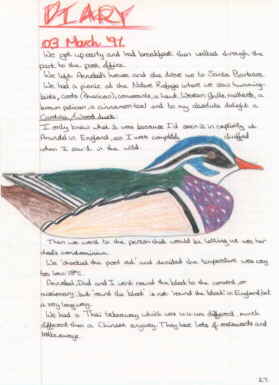 DIARY
03 March '96
We got up early and had breakfast then walked through the
park to the post office.
We left Annabel's house and she drove us to Santa Barbara.
We had a picnic at the Nature Refuge where we saw humming-
birds, coots (American), cormorants, a hawk, Western Gulls, mallards, a
brown pelican, a cinnamon teal and to my absolute delight a
Carolina Wood duck.
I only knew what it was because I'd seen it in captivity at
Arundel in England, so I was chuffed
when I saw it in the wild.
Then we went to the person that would be letting us use her
condominium.
We 'checked the pool out' and decided the temperature was way
too low
Annabel, Dad and I went round the block to the convent or
missionary, but 'round the block' is not 'round the block' in England but
a very long way.
We had a Thai takeaway which was different, much
different than a Chinese anyway. They have lots of restaurants and
takeaways.